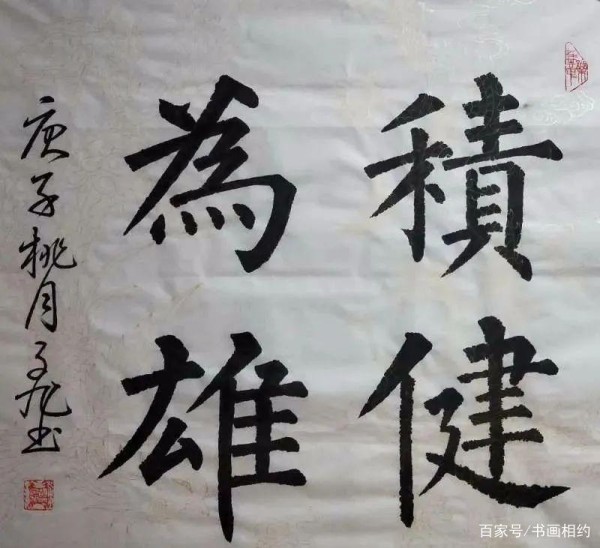 積健
為雄
庚子桃月子旭书
百家号/书画相约